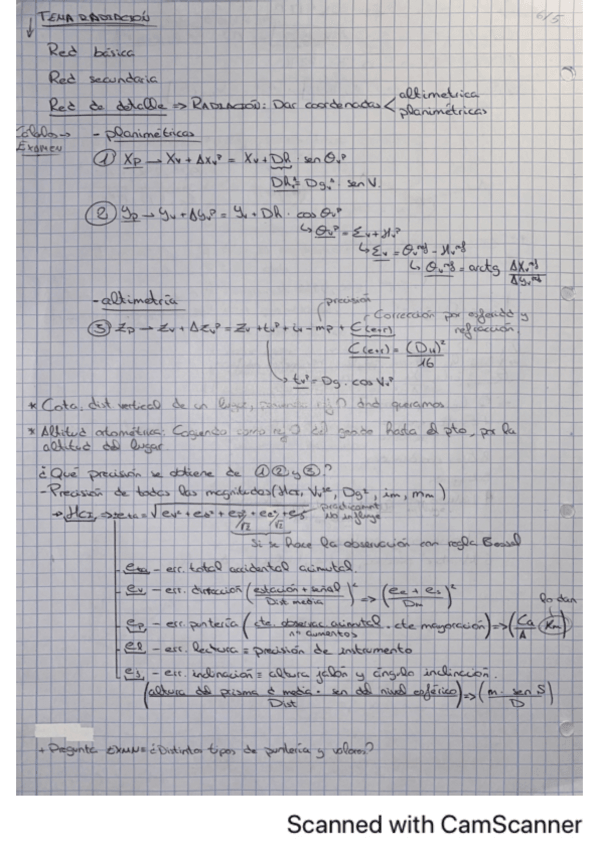 TEMA RADIACIÓN
6/5
Red básica
Red secundaria
Red de detalle => RADIACIÓN: Dar coordenadas < altimetrica
planimétricas
Examen
- planimétricas
① Xp → Xv + ΔXvᵖ = Xv + DR · sen θvᵖ
DR = Dg · sen V.
② Yp → Yv + ΔYvᵖ = Yv + DR · cos θvᵖ
↳ θvᵖ = Σv + Hvᵖ
↳ Σv = θv - Hv
↳ θv = arctg ΔXv / ΔYv
- altimetría
precisión
③ Zp → Zv + ΔZvᵖ = Zv + tvᵖ + iv - mp + C(e+r)
Corrección por esfericidad y refracción
C(e+r) = (Du)² / 16
tvᵖ = Dg · cos Vvᵖ
* Cota: dist vertical de un lugar, dnd queramos
* Altitud ortométrica: Cogiendo como del geoide hasta el pto, por la
altitud del lugar
¿Qué precisión se obtiene de ① ② y ③?
- Precisión de todas las magnitudes (Hcz, Dg, im, mm)
→ Hcz => eta = √ev² + es² + ep² + el²
/√2 /√2
practicament No influye
Si se hace la observación con regla Bessel
eta - err. total accidental acimutal.
ev - err. dirección (estación + señal / Dist media)² => (ee + es / Dm)²
ep - err. puntería (cte. observac acimutal / nº aumentos · cte mayoración) => (Ca / A · Km)
lo dan
el - err. lectura = precisión de instrumento
es - err. inclinación = altura jalón y ángulo inclinación.
(altura del prisma ó media · sen del nivel esférico / Dist) => (m · sen S / D)
+ Pregunta EXMN = ¿Distintos tipos de puntería y valores?
Scanned with CamScanner